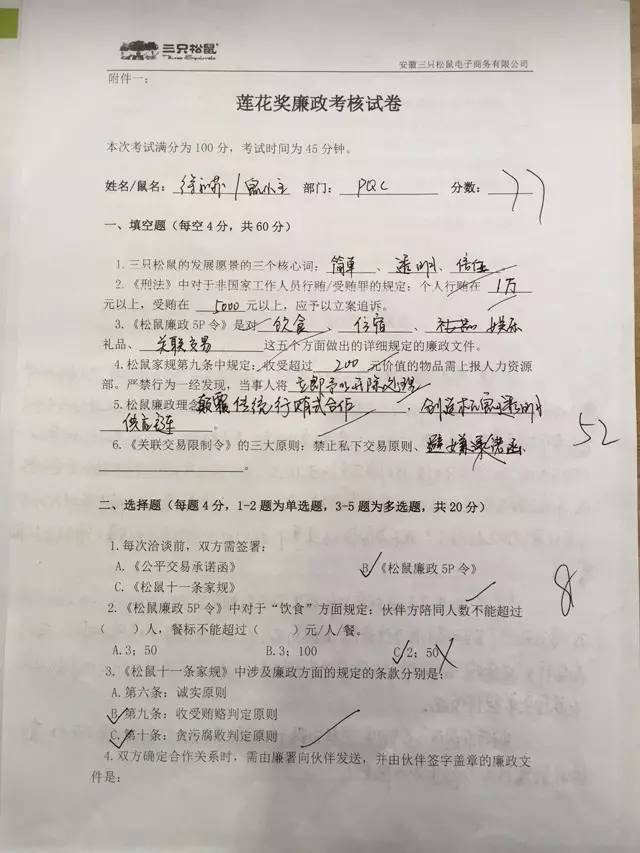 三只松鼠
Three Squirrels
安徽三只松鼠电子商务有限公司
附件一：
莲花奖廉政考核试卷
本次考试满分为 100 分，考试时间为 45 分钟。
姓名/鼠名： /鼠小主 部门： PQC 分数： 77
一、填空题（每空 4 分，共 60 分）
1.三只松鼠的发展愿景的三个核心词：简单、透明、信任
2.《刑法》中对于非国家工作人员行贿/受贿罪的规定：个人行贿在 1万
元以上，受贿在 5000 元以上，应予以立案追诉。
3.《松鼠廉政 5P 令》是对 饮食、住宿、 娱乐
礼品、关联交易 这五个方面做出的详细规定的廉政文件。
4.松鼠家规第九条中规定：收受超过 200 元价值的物品需上报人力资源
部。严禁行为一经发现，当事人将 立即予以开除处理
5.松鼠廉政理念 颠覆传统行贿式合作，创造极富透明
供应链。
6.《关联交易限制令》的三大原则：禁止私下交易原则、避嫌承诺函
。
52
二、选择题（每题 4 分，1-2 题为单选题，3-5 题为多选题，共 20 分）
1.每次洽谈前，双方需签署：
A.《公平交易承诺函》 B.《松鼠廉政 5P 令》
C.《松鼠十一条家规》
8
2.《松鼠廉政 5P 令》中对于“饮食”方面规定：伙伴方陪同人数不能超过
（ ）人，餐标不能超过（ ）元/人/餐。
A.3；50 B.3；100 C.2；50
3.《松鼠十一条家规》中涉及廉政方面的规定的条款分别是：
A.第六条：诚实原则
B.第九条：收受贿赂判定原则
C.第十条：贪污腐败判定原则
4.双方确定合作关系时，需由廉署向伙伴发送，并由伙伴签字盖章的廉政文
件是：